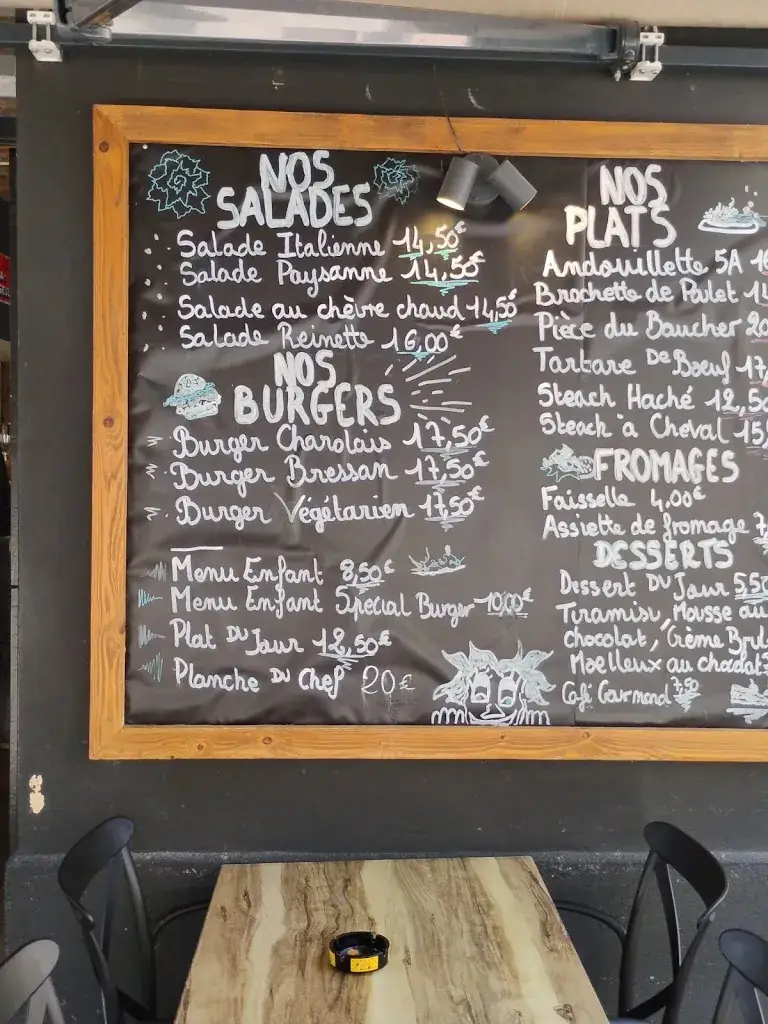 NOS
SALADES
Salade Italienne 14,50€
Salade Paysanne 14,50€
Salade au chèvre chaud 14,50€
Salade Reinette 16,00€
NOS
BURGERS
Burger Charolais 17,50€
Burger Bressan 17,50€
Burger Végétarien 17,50€
Menu Enfant 8,50€
Menu Enfant Special Burger 10,00€
Plat Du Jour 12,50€
Planche Du Chef 20€
NOS
PLATS
Andouillette 5A
Brochette de Poulet
Pièce du Boucher
Tartare De Boeuf
Steack Haché 12,50
Steack à Cheval
FROMAGES
Faisselle 4,00€
Assiette de fromage
DESSERTS
Dessert Du Jour 5,50
Tiramisu, Mousse au
chocolat, Crème
Moelleux au chocolat
Café Gourmand 7,90